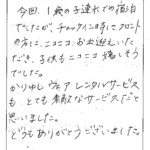 今回、1歳の子連れでの宿泊
でしたが、チェックインの時にフロント
の方に、ニコニコお出迎えいた
だき、子供もニコニコ嬉しそう
でした。
かりゆしウェアレンタルサービス
も、とても素敵なサービスだと
思いました。
どうもありがとうございました。